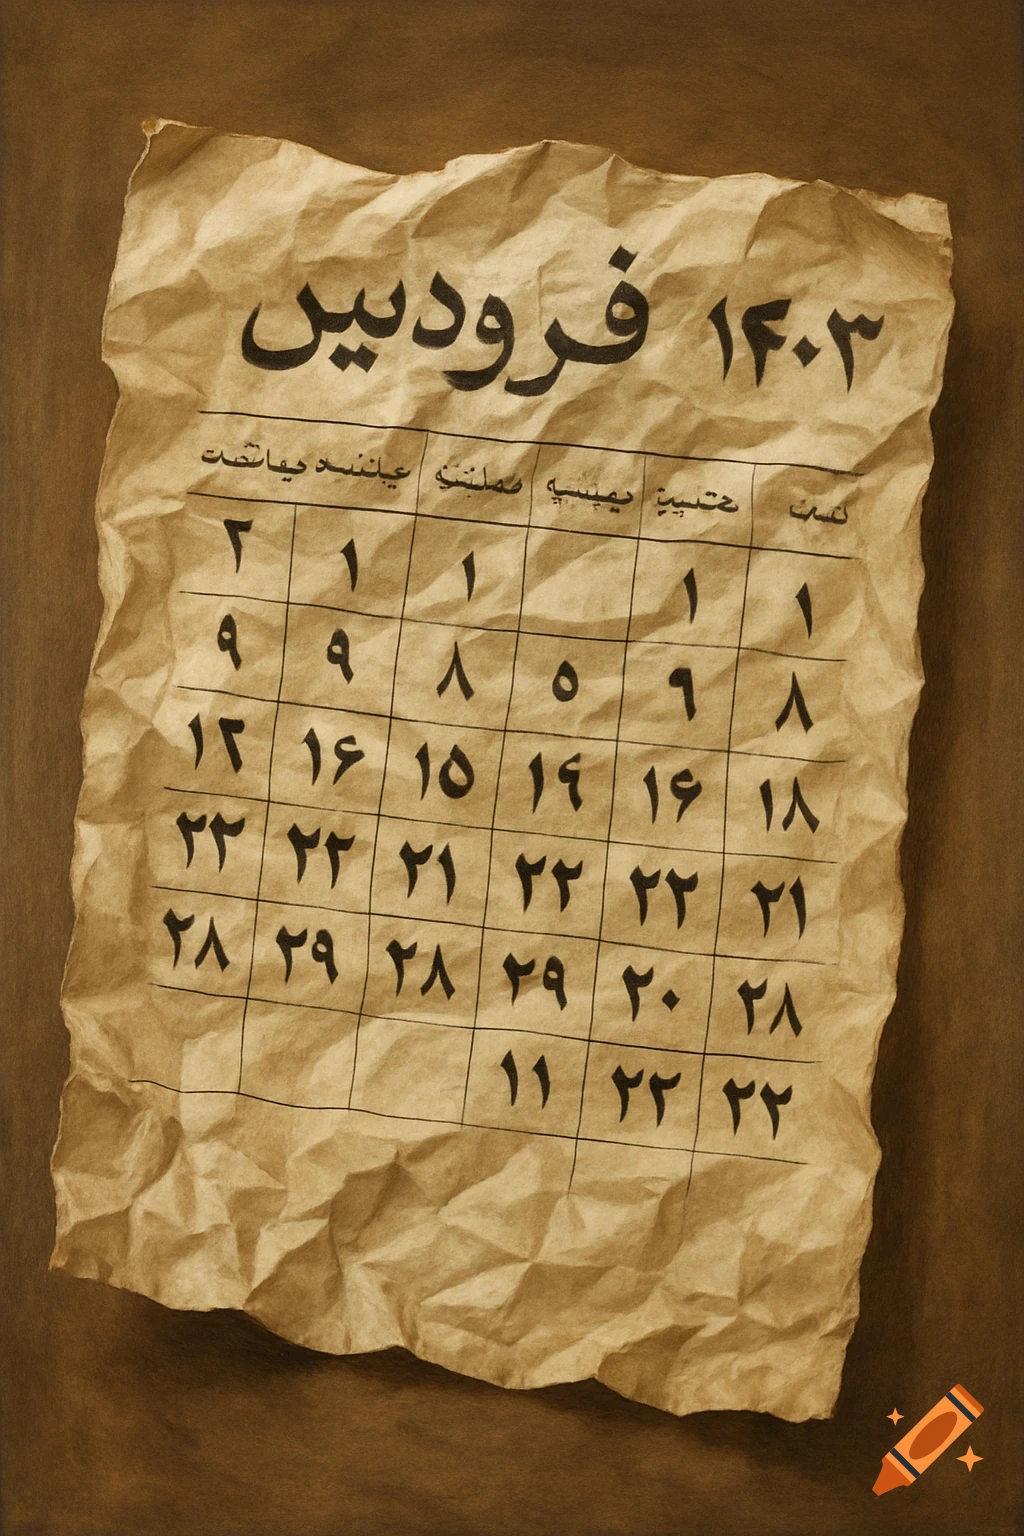 فرودیں ۱۴۰۳
۱ ۱ ۱ ۱ ۲
۸ ۹ ۵ ۸ ۹ ۹
۱۸ ۱۶ ۱۹ ۱۵ ۱۶ ۱۲
۲۱ ۲۲ ۲۲ ۲۱ ۲۲ ۲۲
۲۸ ۲۰ ۲۹ ۲۸ ۲۹ ۲۸
۲۲ ۲۲ ۱۱